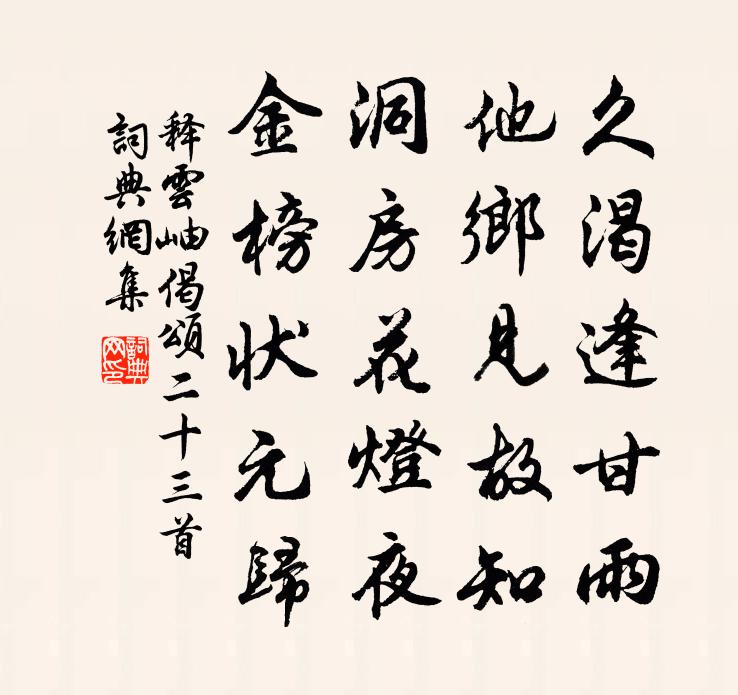 久渴逢甘雨
他鄉見故知
洞房花燈夜
金榜状元歸
释雲岫偈頌二十三首
詞典網集
詞典網印